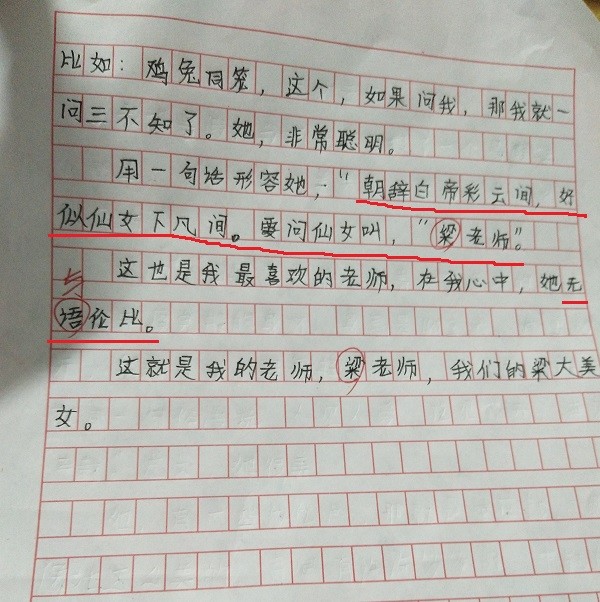 比如：鸡兔同笼，这个，如果问我，那我就一
问三不知了。她，非常聪明。
用一句话形容她，“朝辞白帝彩云间，好
似仙女下凡间。要问仙女叫，“梁老师”。
这也是我最喜欢的老师，在我心中，她无
与
语伦比。
这就是我的老师，梁老师，我们的梁大美
女。